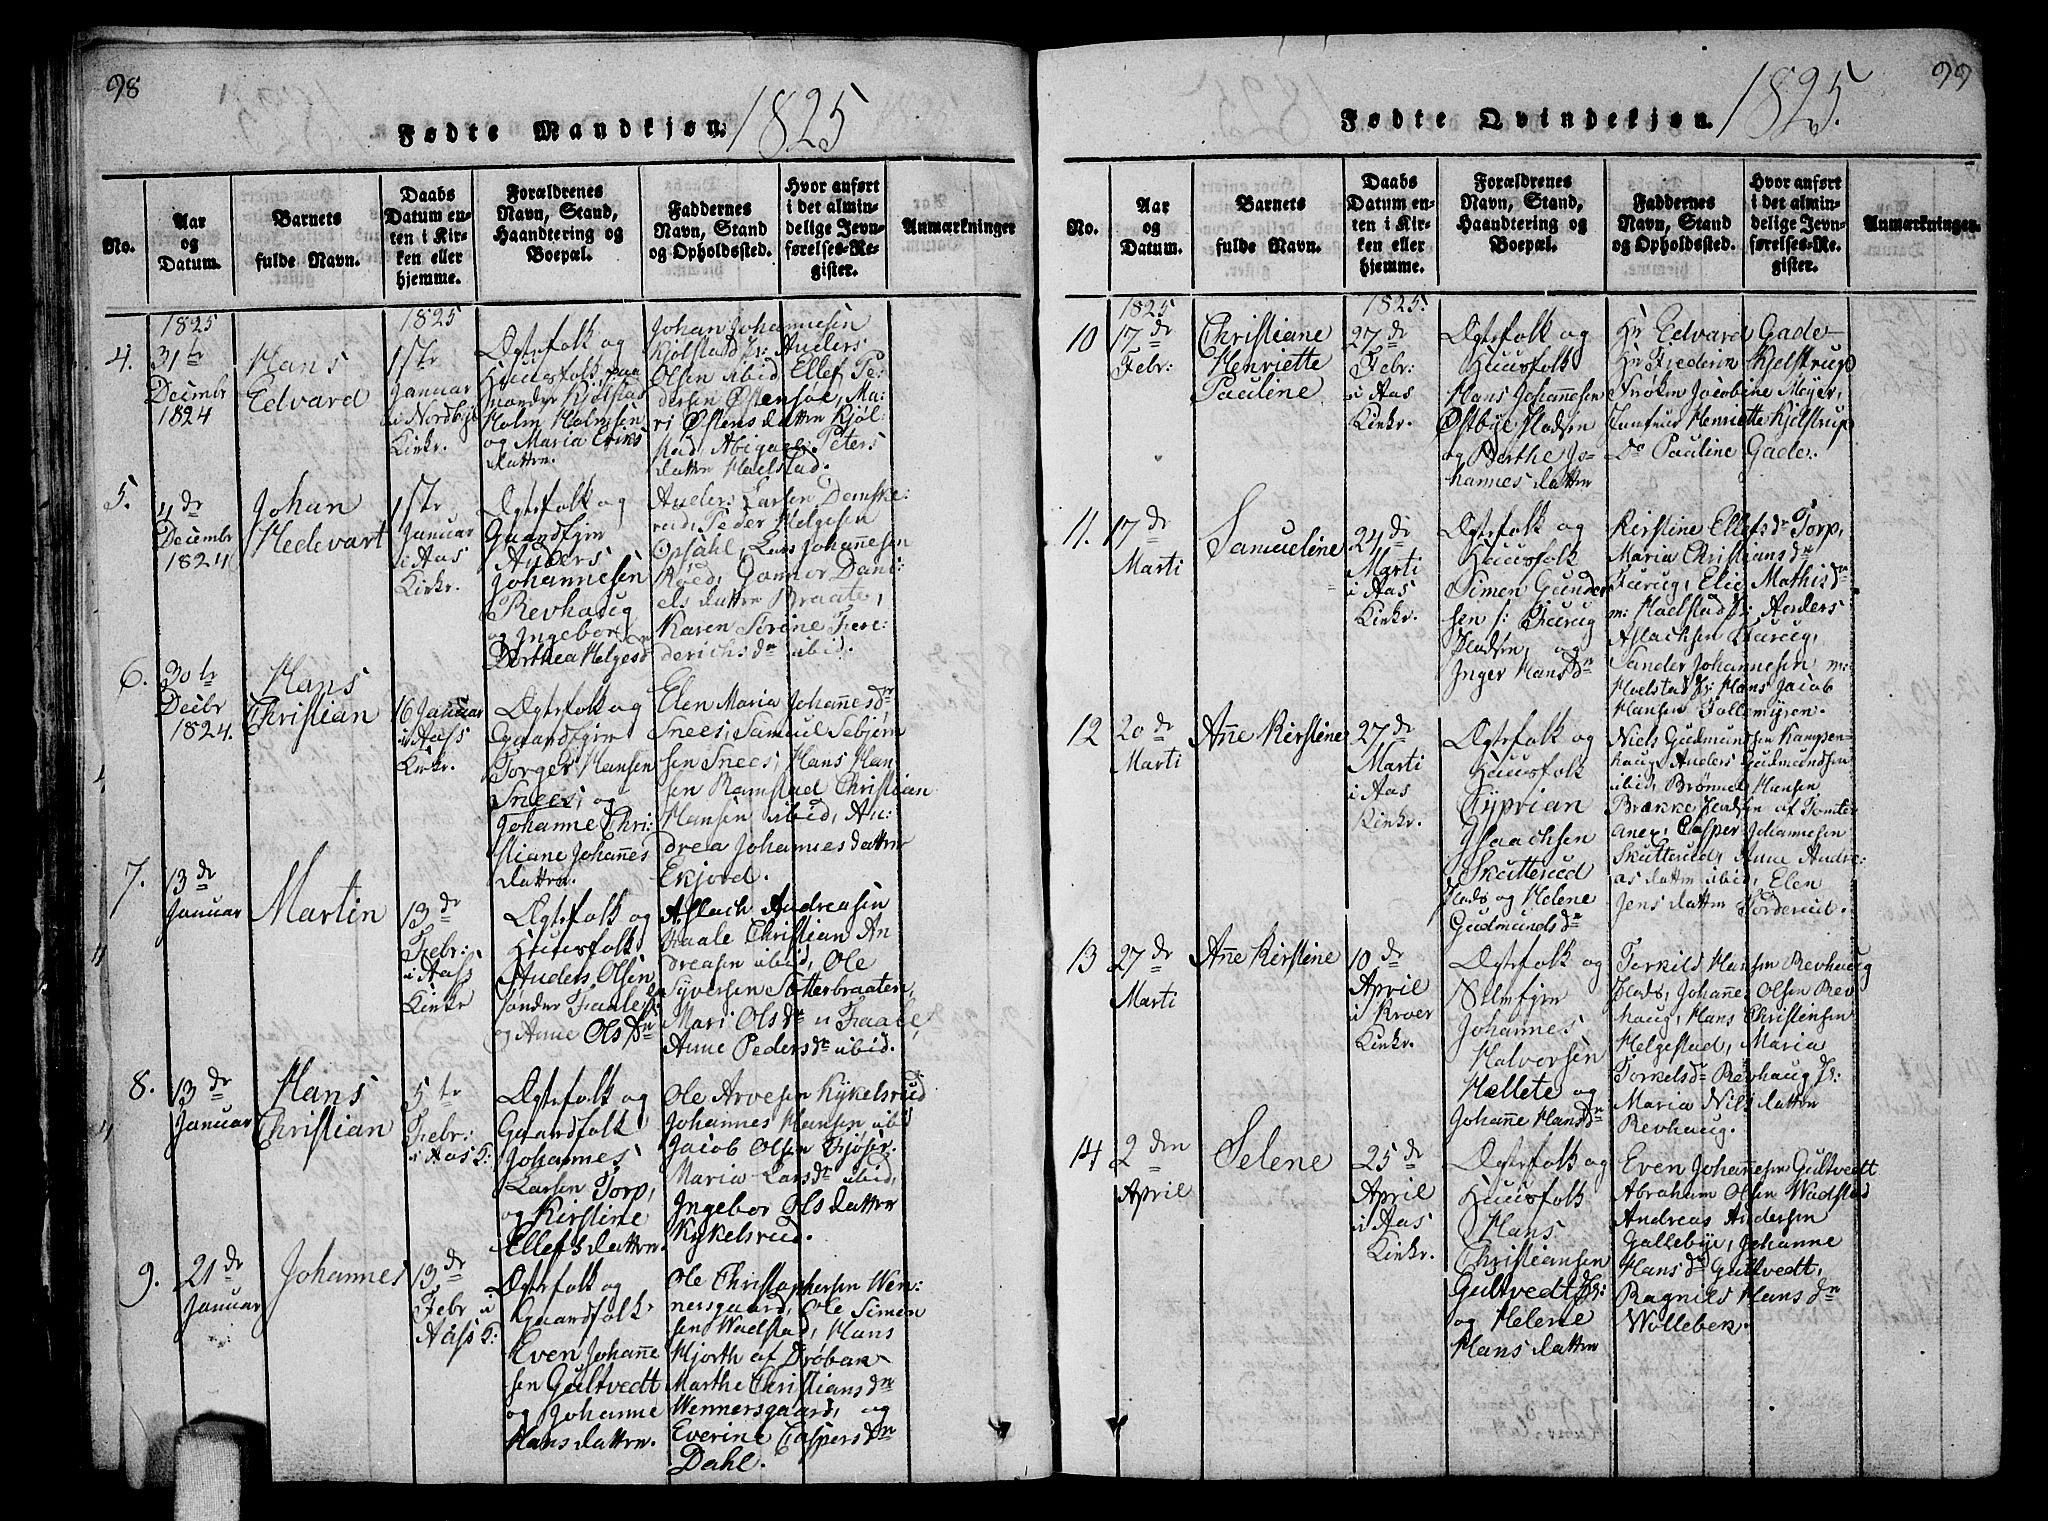 98
Fødte Mandkjøn. 1825
No.
Aar
og
Datum.
Barnets
fulde Navn.
Daabs
Datum en-
ten i Kir-
ken eller
hjemme.
Forældrenes
Navn, Stand,
Haandtering og
Boepæl.
Faddernes
Navn, Stand
og Opholdssted.
Hvor anført
i det almin-
delige Jevn-
førelses-Re-
gister.
Anmærkninger
4.
1825
31te
Decimbr
1824
Hans
Edvard
1825
1ste
Januar
i Nordbye
Kirke.
Ægtefolk og
Huusfolk paa
Kjølstad
Holm Holmsen
og Maria Eriks
datter
Johan Johannesen
Kjølstad Anders
Olsen ibid, Ellef Pe-
dersen Østensøe, Ma-
ri Østens datter Kjøl-
stad, Abigael Peters
datter Haelstad.
5.
4de
Decimbr
1824
Johan
Hedevart
1ste
Januar
i Aas
Kirke.
Ægtefolk og
Gaardfolk
Anders
Johannesen
Revhaug
og Ingebor
Dorthea Helgesdr
Anders Larsen Danske-
rud, Peder Helgesen
Opsahl, Lars Johannesen
Roed, Gonnor Dani-
els datter Braate,
Karen Sirine Fre-
derichsdr ibid.
6.
30te
Decbr
1824.
Hans
Christian
16 Januar
i Aass
Kirke.
Ægtefolk og
Torger Hansen
Snees, og
Johanne Chri-
stiane Johannes
datter.
Elen Maria Johannesdr
Snees, Samuel Sebjørn
sen Snees, Hans Han-
sen Ramstad Christian
Hansen ibid, An-
drea Johannesdatter
Ekjord.
7.
13de
Januar
Martin
13de
Febr:
i Aass
Kirke
Ægtefolk og
Huusfolk
Anders Olsen
sønder Fraale
og Anne Olsdr
Aslach Andreasen
Haale Christian An
dreasen ibid, Ole
Syversen Sætterbraaten,
Mari Olsdr i Fraale,
Anne Pedersdr ibid.
8.
13de
Januar
Hans
Christian
5te
Febr:
i Aas K:
Ægtefolk og
Gaardfolk
Johannes
Larsen Torp,
og Kirstine
Ellefsdatter.
Ole Arvesen Kykelsrud
Johannes Hansen ibid
Jacob Olsen Tsjøser.
Maria Larsdr ibid,
Ingebor Olsdatter
Kykelsrud.
9.
21de
Januar
Johannes
13de
Febr i
Aass K:
Ægtefolk og
Gaardfolk
Even Johanne
sen Gultvedt
og Johanne
Hansdatter.
Ole Christophersen Wen-
nersgaard, Ole Simon
sen Wadstad, Hans
Hjorth af Drøbak
Marthe Christiansdr
Wennersgaard, og
Everine Caspersdr
Dahl.
99
Fødte Qvindekjøn. 1825.
No.
Aar
og
Datum.
Barnets
fulde Navn.
Daabs
Datum en-
ten i Kir-
ken eller
hjemme.
Forældrenes
Navn, Stand,
Haandtering og
Boepæl.
Faddernes
Navn, Stand
og Opholdssted.
Hvor anført
i det almin-
delige Jevn-
førelses-Re-
gister.
Anmærkninger.
10
1825
17de
Febr:
Christiane
Henriette
Pauline
1825.
27de
Febr:
i Aas
Kirke.
Ægtefolk og
Huusfolk
Hans Johannesen
Østbye Pladsen
og Berthe Jo-
hannesdatter
Hr Edvard Gade
Hr Frederik Kjelstrup
Frøken Jacobine Meyer,
Jomfrue Henriette Kjelstrup
Do Pauline Gade.
11.
17de
Marti
Samueline
24de
Marti
i Aas
Kirke.
Ægtefolk og
Huusfolk
Simen Gunder
sen Furug
Pladsen, og
Inger Hansdr
Kirstine Ellefsdr Torp,
Maria Christiansdr
Furug, Elie Mathisdr
m: Haelstad, Anders
Aslachsen Furug,
Sander Johannesen m:
Haelstad, Hans Jacob
Hansen Tollemyren.
12
20de
Marti
Ane Kirstine
27de
Marti
i Aas
Kirke.
Ægtefolk og
Huusfolk
Cyprian
Isaachsen
Skutterud
Plads og Helene
Gudmundsdr
Niels Gudmundsen Kampen-
haug Anders Gudmundsen
ibid, Brønnel Hansen
Brække Pladsen af Tomter
anex, Casper Johannesen
Skutterud, Anne Andre-
as datter ibid, Elen
Jensdatter Norderud.
13
27de
Marti
Ane Kirstine
10de
April
i Kroer
Kirke.
Ægtefolk og
Selvejer
Johannes
Halvorsen
Hællete og
Johanne Hansdr
Torkild Hansen Revhaug
Plads, Johannes Olsen Rev
haug, Hans Christensen
Helgestad, Maria
Torkelsdr Revhaug Pl:
Maria Nils datter
Revhaug.
14
2den
April
Selene
25de
April
i Aas
Kirke.
Ægtefolk og
Huusfolk
Hans
Christiansen
Gultvedt Pl:
og Helene
Hans datter
Even Johannesen Gultvedt
Abraham Olsen Wadstad
Andreas Andersen
Gallebye, Johanne
Hansdr Gultvedt,
Ragnild Hansdr
Wollebek.